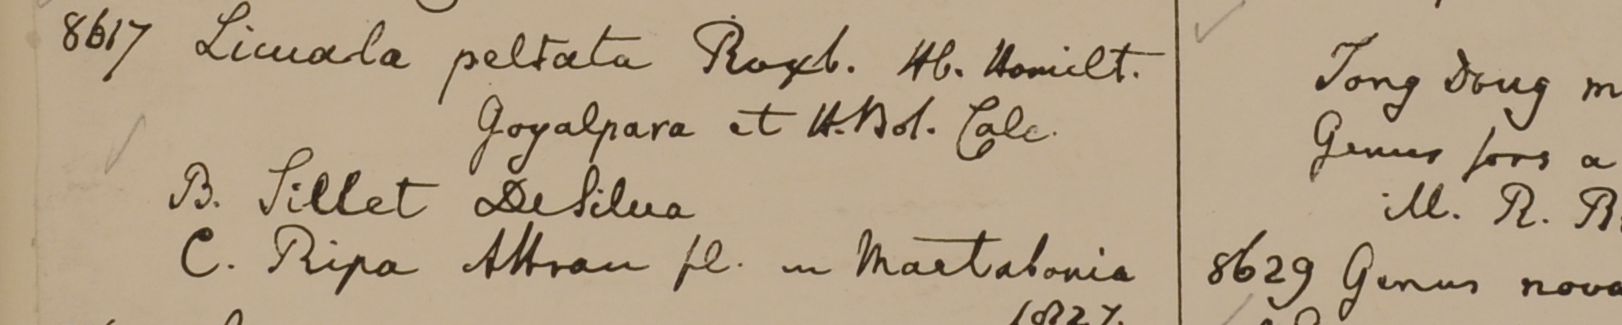 8617 Licuala peltata Roxb. Hb. Hamilt.
Goyalpara et H. Bot. Calc.
B. Sillet DeSilva
C. Ripa Attran fl. in Martabania
1827.
Tong Doug m
Genus fors a
M. R. B.
8629 Genus nova